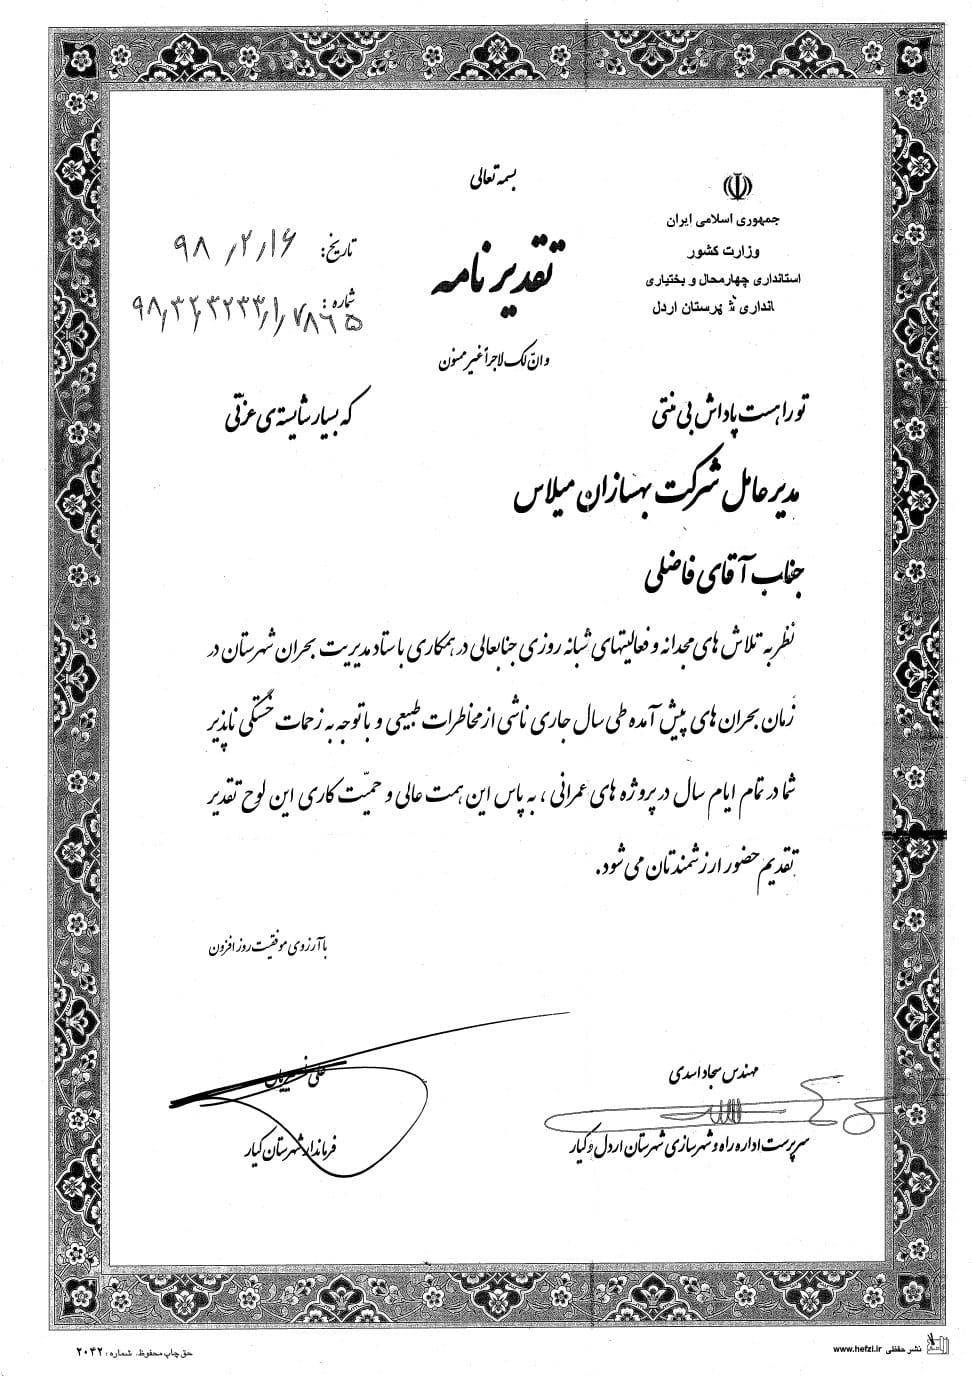 بسمه تعالی
جمهوری اسلامی ایران
وزارت کشور
استانداری چهارمحال و بختیاری
تاریخ: ۹۸/۲/۱۶
شماره:
تقدیر نامه
تو راهست پاداش بی منتی
که بسیار شایسته ی عزتی
مدیر عامل شرکت بهسازان میلاس
جناب آقای فاضلی
نظر به تلاش های مجدانه و فعالیتهای شبانه روزی جنابعالی در همکاری با ستاد مدیریت بحران شهرستان در
زمان بحران های پیش آمده طی سال جاری ناشی از مخاطرات طبیعی و با توجه به زحمات خستگی ناپذیر
شما در تمام ایام سال در پروژه های عمرانی ، به پاس این همت عالی و حمیّت کاری این لوح تقدیر
تقدیم حضور ارزشمندتان می شود.
با آرزوی موفقیت روز افزون
مهندس سجاد اسدی
سرپرست اداره راه و شهرسازی شهرستان اردل و کیار
علی
فرماندار شهرستان کیار
نشر حفظی www.hefzi.ir
حق چاپ محفوظ. شماره: ۲۰۴۲